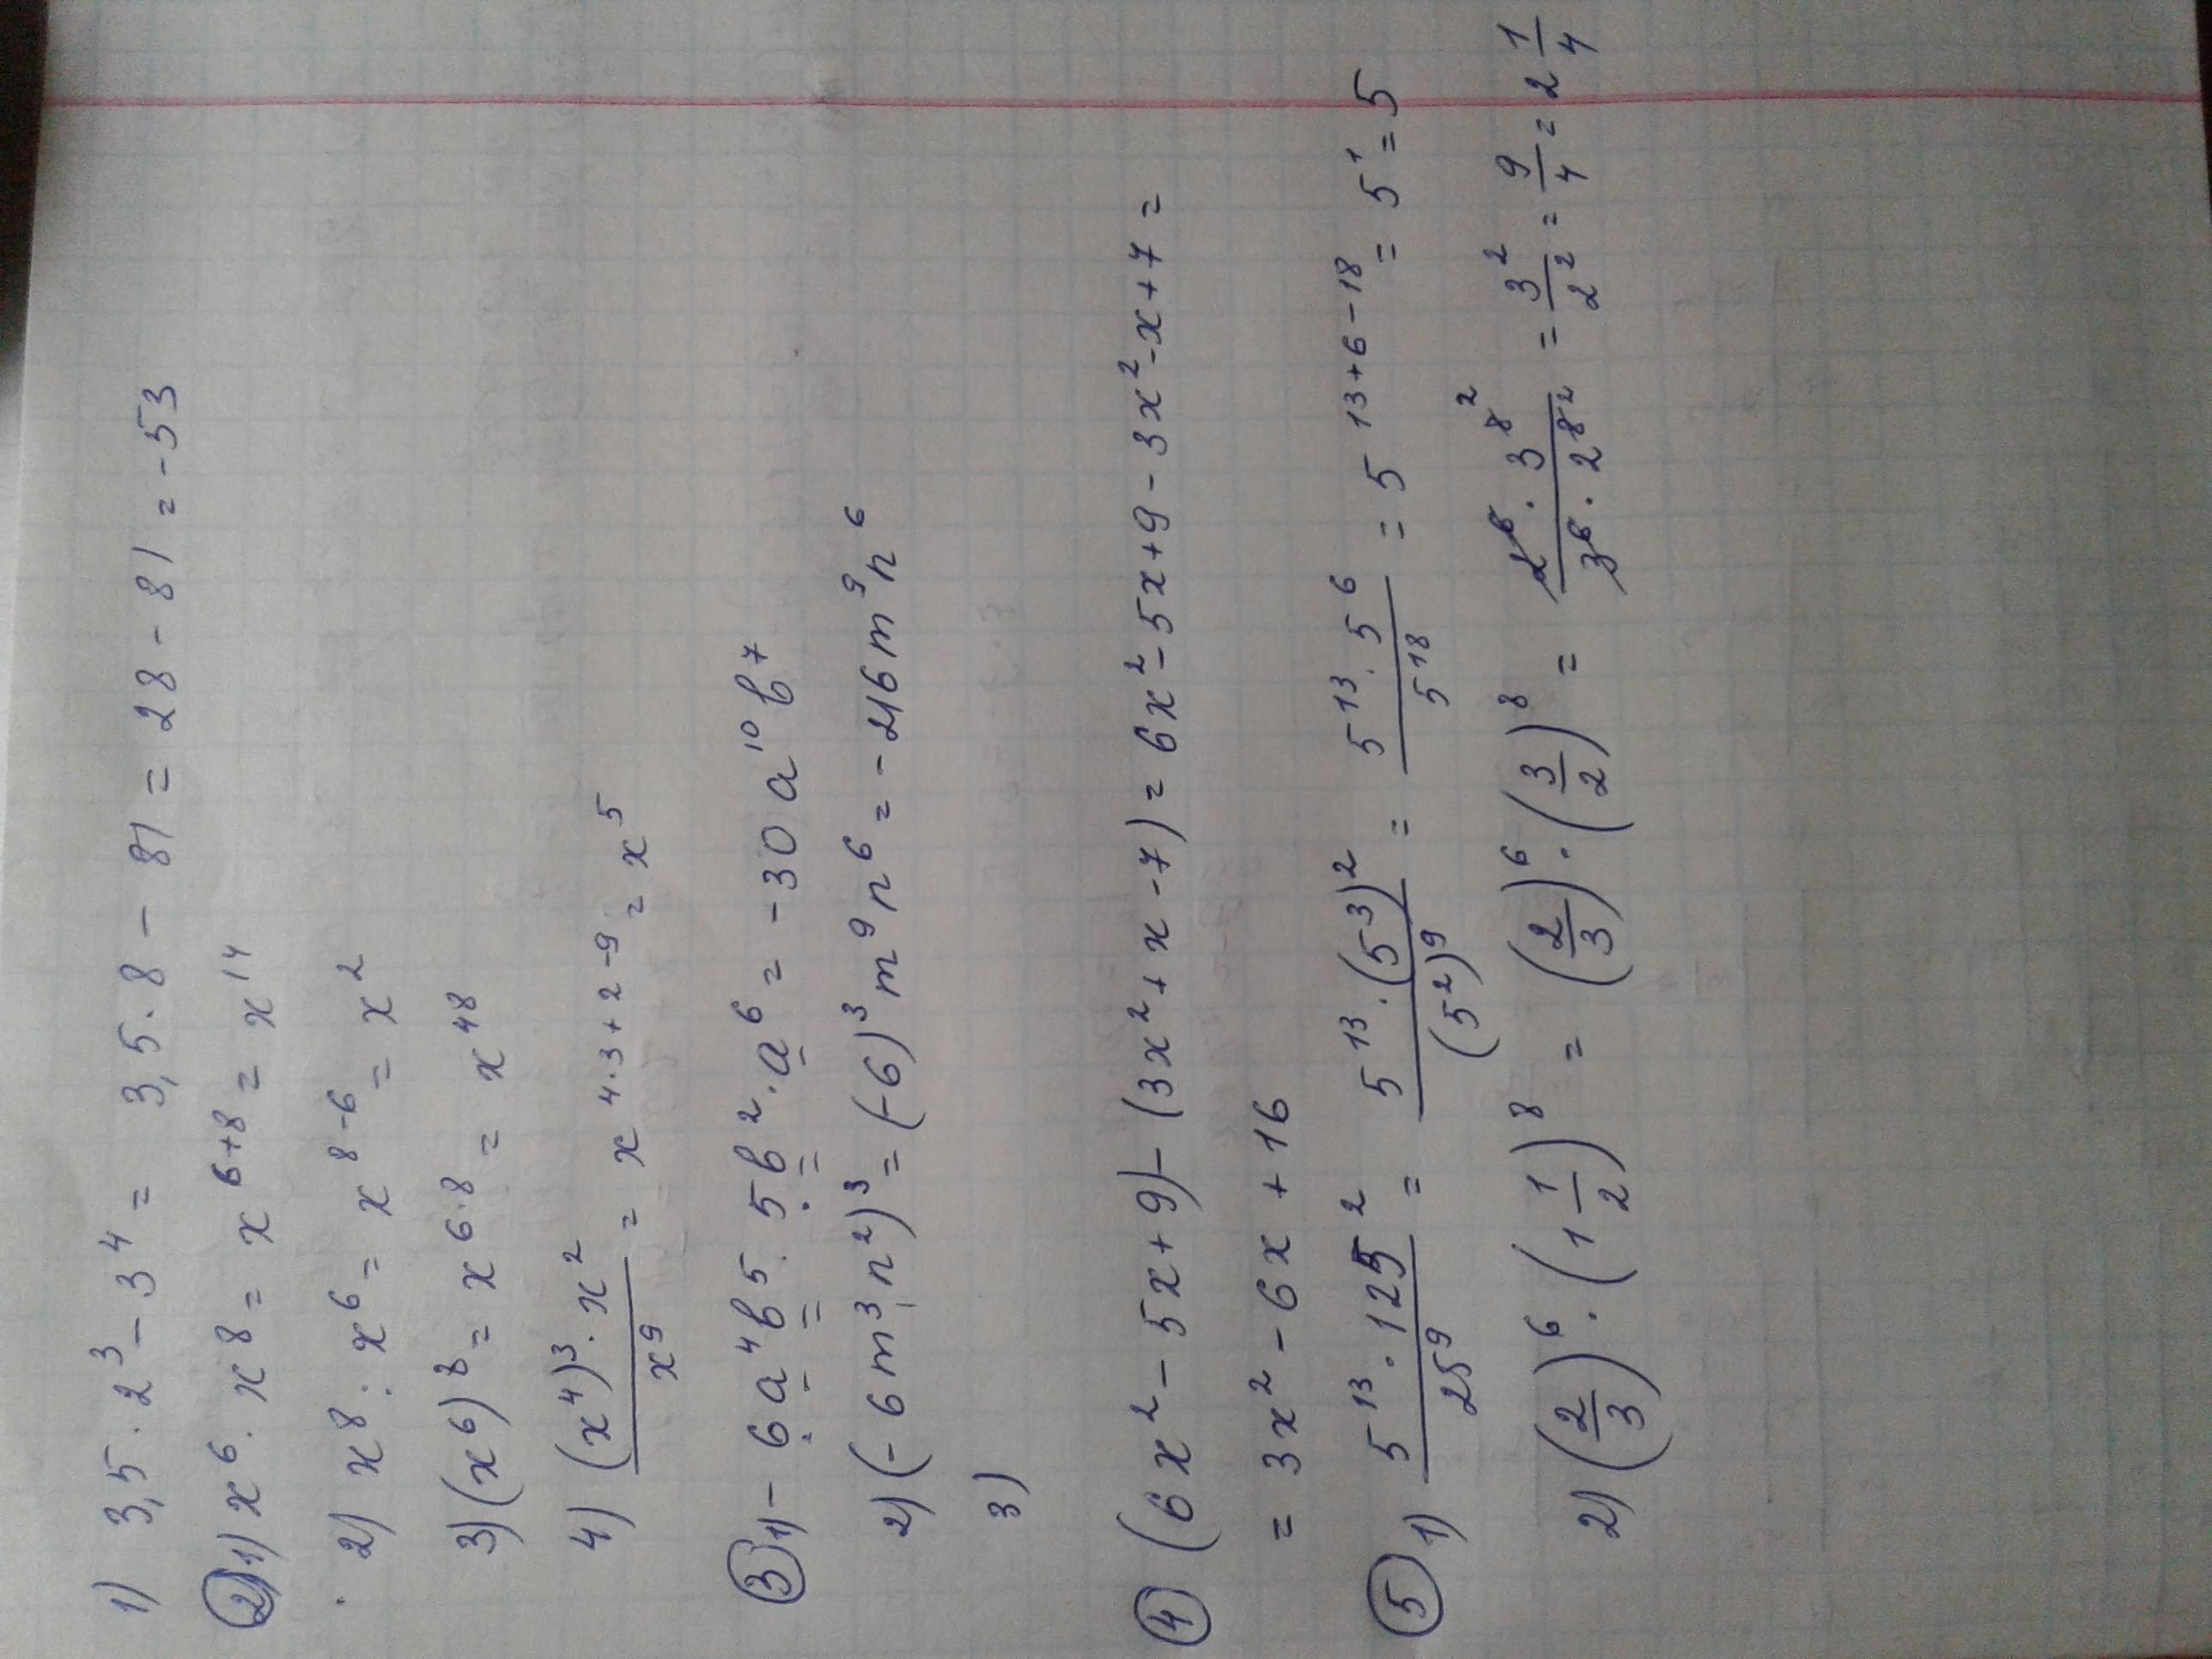 1) 3,5 · 2³ − 3⁴ = 3,5 · 8 − 81 = 28 − 81 = −53
② 1) x⁶ · x⁸ = x⁶⁺⁸ = x¹⁴
2) x⁸ : x⁶ = x⁸⁻⁶ = x²
3) (x⁶)⁸ = x^(6·8) = x⁴⁸
4) ((x⁴)³ · x²)/x⁹ = x^(4·3+2−9) = x⁵
③ 1) −6a⁴b⁵ · 5b² · a⁶ = −30a¹⁰b⁷
2) (−6m³n²)³ = (−6)³m⁹n⁶ = −216m⁹n⁶
3)
④ (6x² − 5x + 9) − (3x² + x − 7) = 6x² − 5x + 9 − 3x² − x + 7 =
= 3x² − 6x + 16
⑤ 1) (5¹³ · 125²)/25⁹ = (5¹³ · (5³)²)/(5²)⁹ = (5¹³ · 5⁶)/5¹⁸ = 5¹³⁺⁶⁻¹⁸ = 5¹ = 5
2) (2/3)⁶ · (1 1/2)⁸ = (2/3)⁶ · (3/2)⁸ = (2⁶ · 3⁸ ²)/(3⁶ · 2⁸ ²) = 3²/2² = 9/4 = 2 1/4